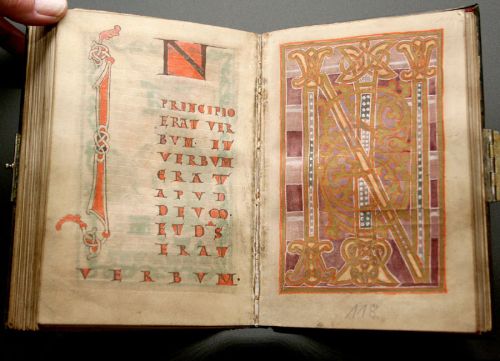 IN
PRINCIPIO
ERAT VER
BUM· ET
VERBUM
ERAT
APUD
DEUM·
ET D̅S̅
ERAT
VERBUM·
N
118